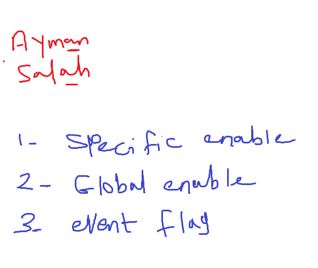 Ayman
Salah
1- Specific enable
2- Global enable
3- event flag